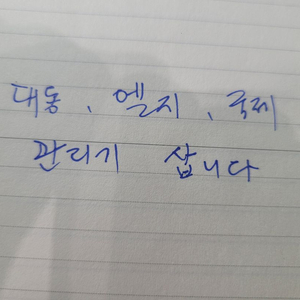 대동、엘지、국제
관리기 삽니다